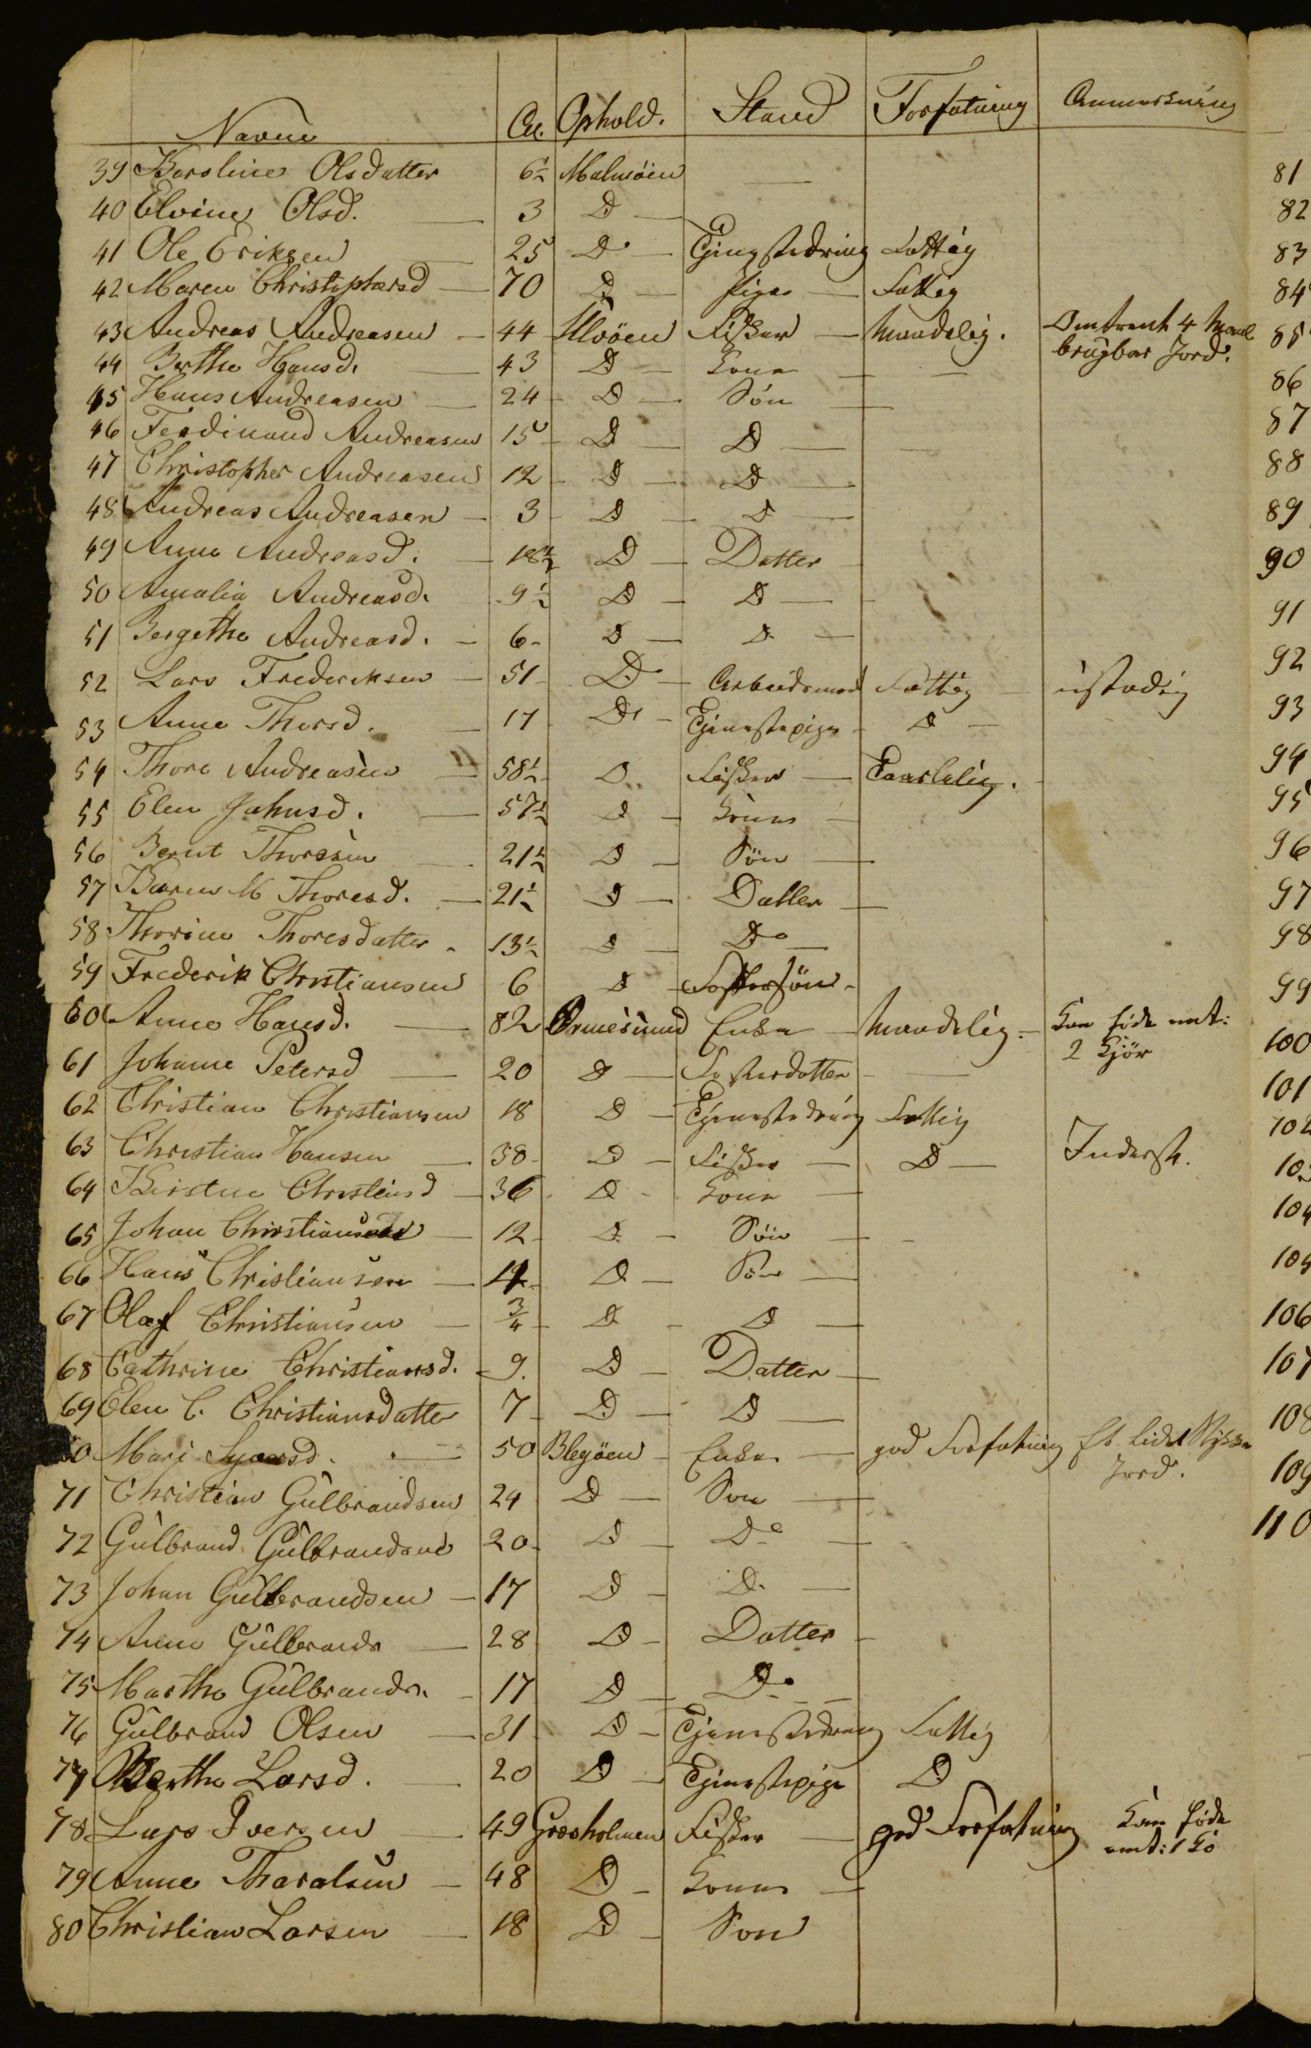 Navne Al. Ophold. Stand Forfatning Anmerkning
39 Karoline Olsdatter 6½ Malmöien —
40 Elvine Olsd. — 3 D —
41 Ole Eriksen — 25 D — Tjenestedreng Fattig
42 Maren Christophersd — 70 D — Pige — Fattig
43 Andreas Andreasen — 44 Ulvöen Fisker — Maadelig. Omtrent 4 Maal
brugbar Jord.
44 Berthe Hansd. — 43 D — Kone —
45 Hans Andreasen — 24 D — Sön —
46 Ferdinand Andreasen 15 D — D —
47 Christopher Andreasen 12 D — D —
48 Andreas Andreasen — 3 D — D —
49 Anne Andreasd. — 18½ D — Datter
50 Amalia Andreasd. 9½ D — D —
51 Bergethe Andreasd. — 6 D — D —
52 Lars Frederiksen — 51 D — Arbeidsmand Fattig — ustadig
53 Anne Thorsd. — 17 D — Tjenestepige D —
54 Thore Andreasen — 58½ D. Fisker — Taarlelig.
55 Elen Johnsd. — 57½ D — Kone —
56 Bernt Thoresen — 21½ D — Sön —
57 Karen M Thoresd. — 21½ D — Datter —
58 Thorine Thoresdatter 13½ D — Do —
59 Frederik Christiansen 6 D Fostersön
60 Anne Hansd. — 82 Ormesund Enke — Maadelig — Kan föde omt:
2 Kjör
61 Johanne Petersd — 20 D — Fosterdatter —
62 Christian Christiansen 18 D — Tjenestedreng Fattig
63 Christian Hansen — 38 D — Fisker — D — Inderst.
64 Kirstine Christensd — 36 D Kone —
65 Johan Christiansen — 12 D — Sön —
66 Hans Christiansen — 4 D — Sön —
67 Olaf Christiansen — ¾ D — D —
68 Cathrine Christiansd. 9. D — Datter —
69 Elen C. Christiansdatter 7 D — D —
0 Mari — 50 Blegöen Enke — god Forfatning Et lidet Stykke
Jord.
71 Christian Gulbrandsen 24 D — Son —
72 Gulbrand Gulbrandsen 20 D — Do —
73 Johan Gulbrandsen — 17 D — D. —
74 Anne Gulbrands — 28 D — Datter —
75 Marthe Gulbrands. 17 D — Do —
76 Gulbrand Olsen — 31 D — Tjenestedreng Fattig
77 Berthe Larsd. 20 D — Tjenestepige D
78 Lars Iversen — 49 Græsholmen Fisker — god Forfatning Kan föde
omt: 1 Ko
79 Anne Tharalsen — 48 D — Kone —
80 Christian Larsen — 18 D — Son
81
82
83
84
85
86
87
88
89
90
91
92
93
94
95
96
97
98
99
100
101
102
103
104
105
106
107
108
109
110